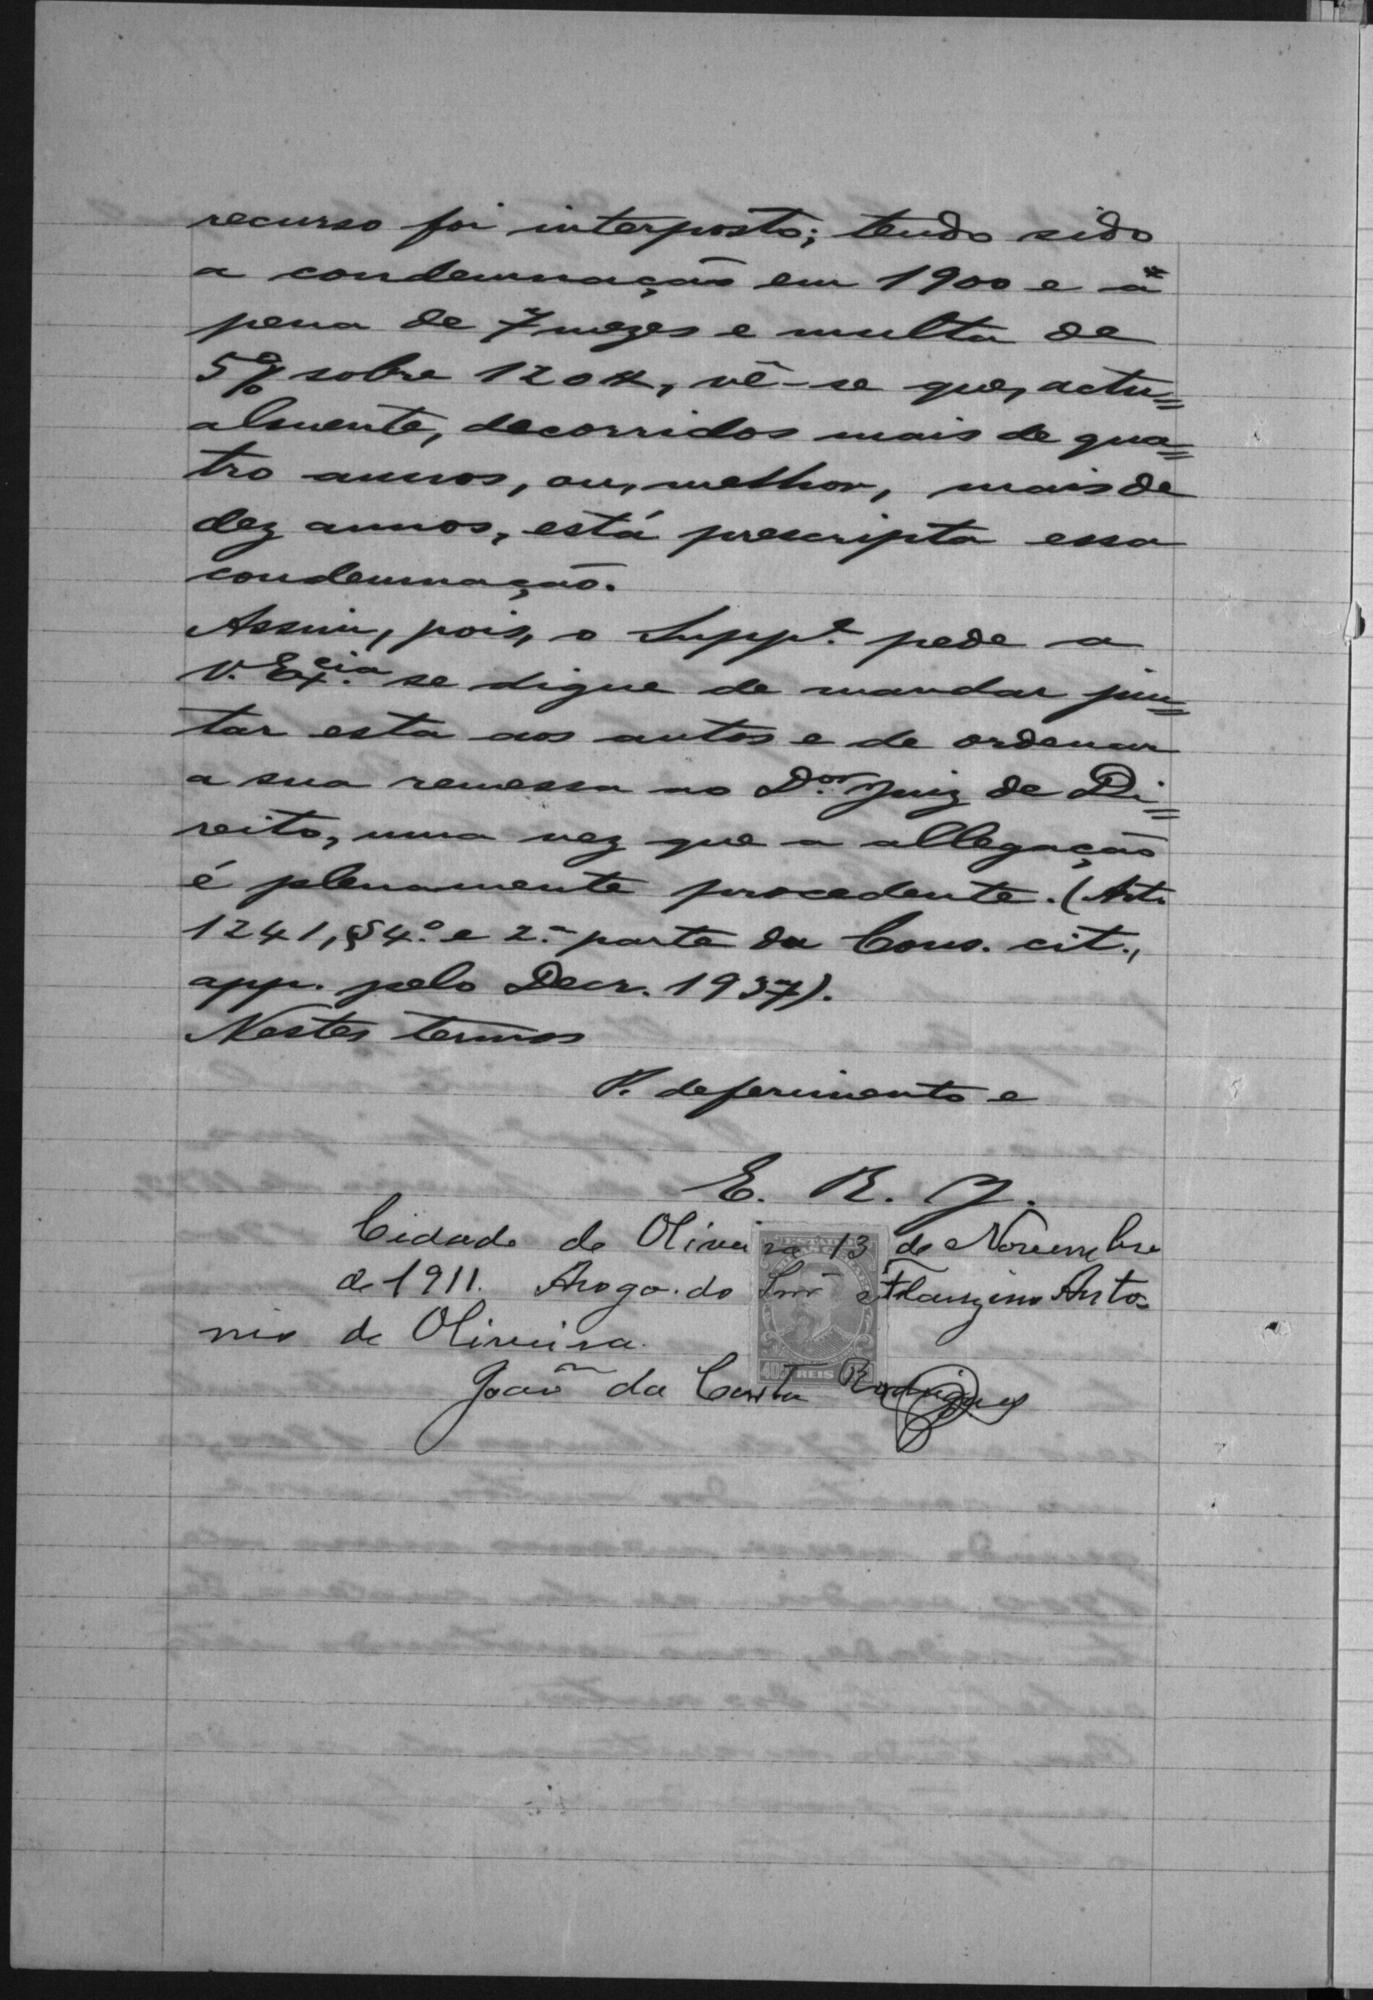 recurso foi interposto; tendo sido
a condemnação em 1900 e á
pena de 7 mezes e multa de
5% sobre 120$, vê-se que, actu=
almente, decorridos mais de qua=
tro annos, ou, melhor, mais de
dez annos, está prescripta essa
condemnação.
Assim, pois, o Suppe. pede a
V. Excia. se digne de mandar jun=
tar esta aos autos e de ordenar
a sua remessa ao Dor. Juiz de Di=
reito, uma vez que a allegação
é plenamente procedente. (Art.
1241, § 4.º e 2.ª parte da Cons. cit.,
app. pelo Decr. 1937).
Nestes termos
P. deferimento e
E. R. J.
Cidade de Oliveira 13 de Novembro
de 1911. Arogo. do Snr Anto-
nio de Oliveira.
João da Costa Rodrigues
REIS